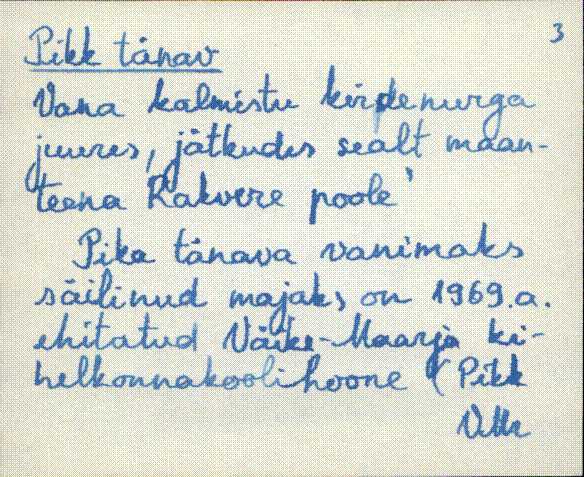 3
Pikk tänav
Vana kalmistu kirdenurga
juures, jätkudes sealt maan-
teena Rakvere poole"
Pika tänava vanimaks
säilinud majaks on 1969.a.
ehitatud Väike-Maarja ki-
helkonnakooli hoone (Pikk